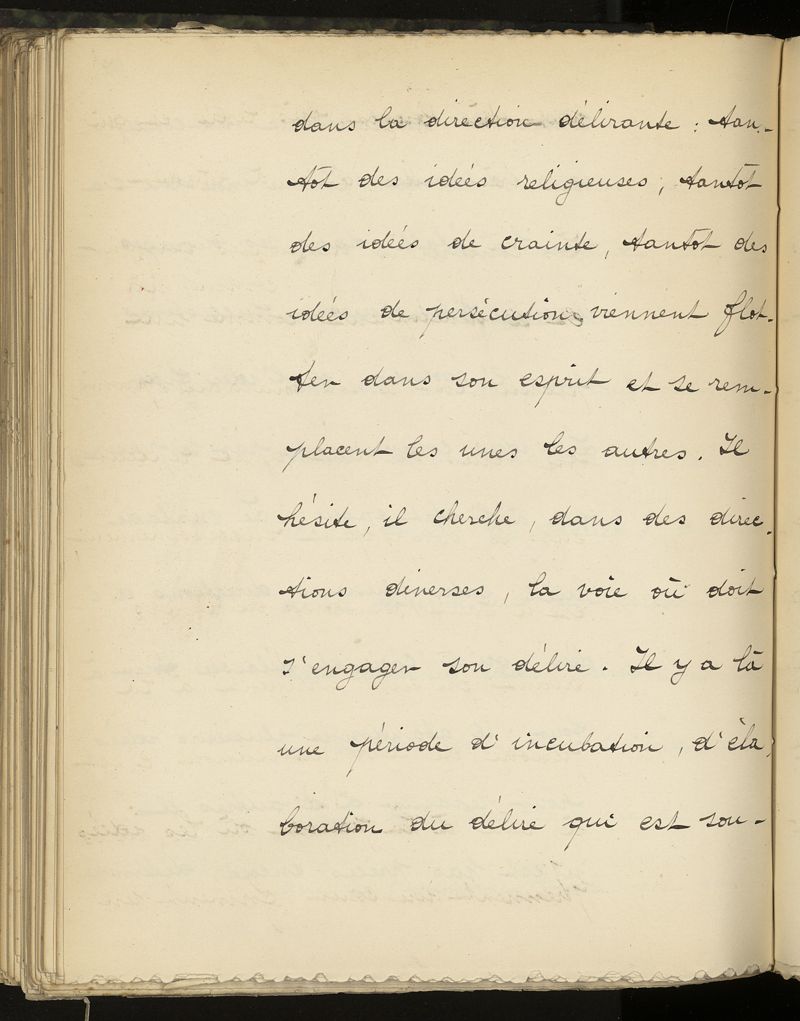 dans la direction délirante : tan-
tôt des idées religieuses, tantôt
des idées de crainte, tantôt des
idées de persécution viennent flot-
ter dans son esprit et se rem-
placent les unes les autres. Il
hésite, il cherche, dans des direc-
tions diverses, la voie où doit
s'engager son délire. Il y a là
une période d'incubation, d'éla-
boration du délire qui est sou-